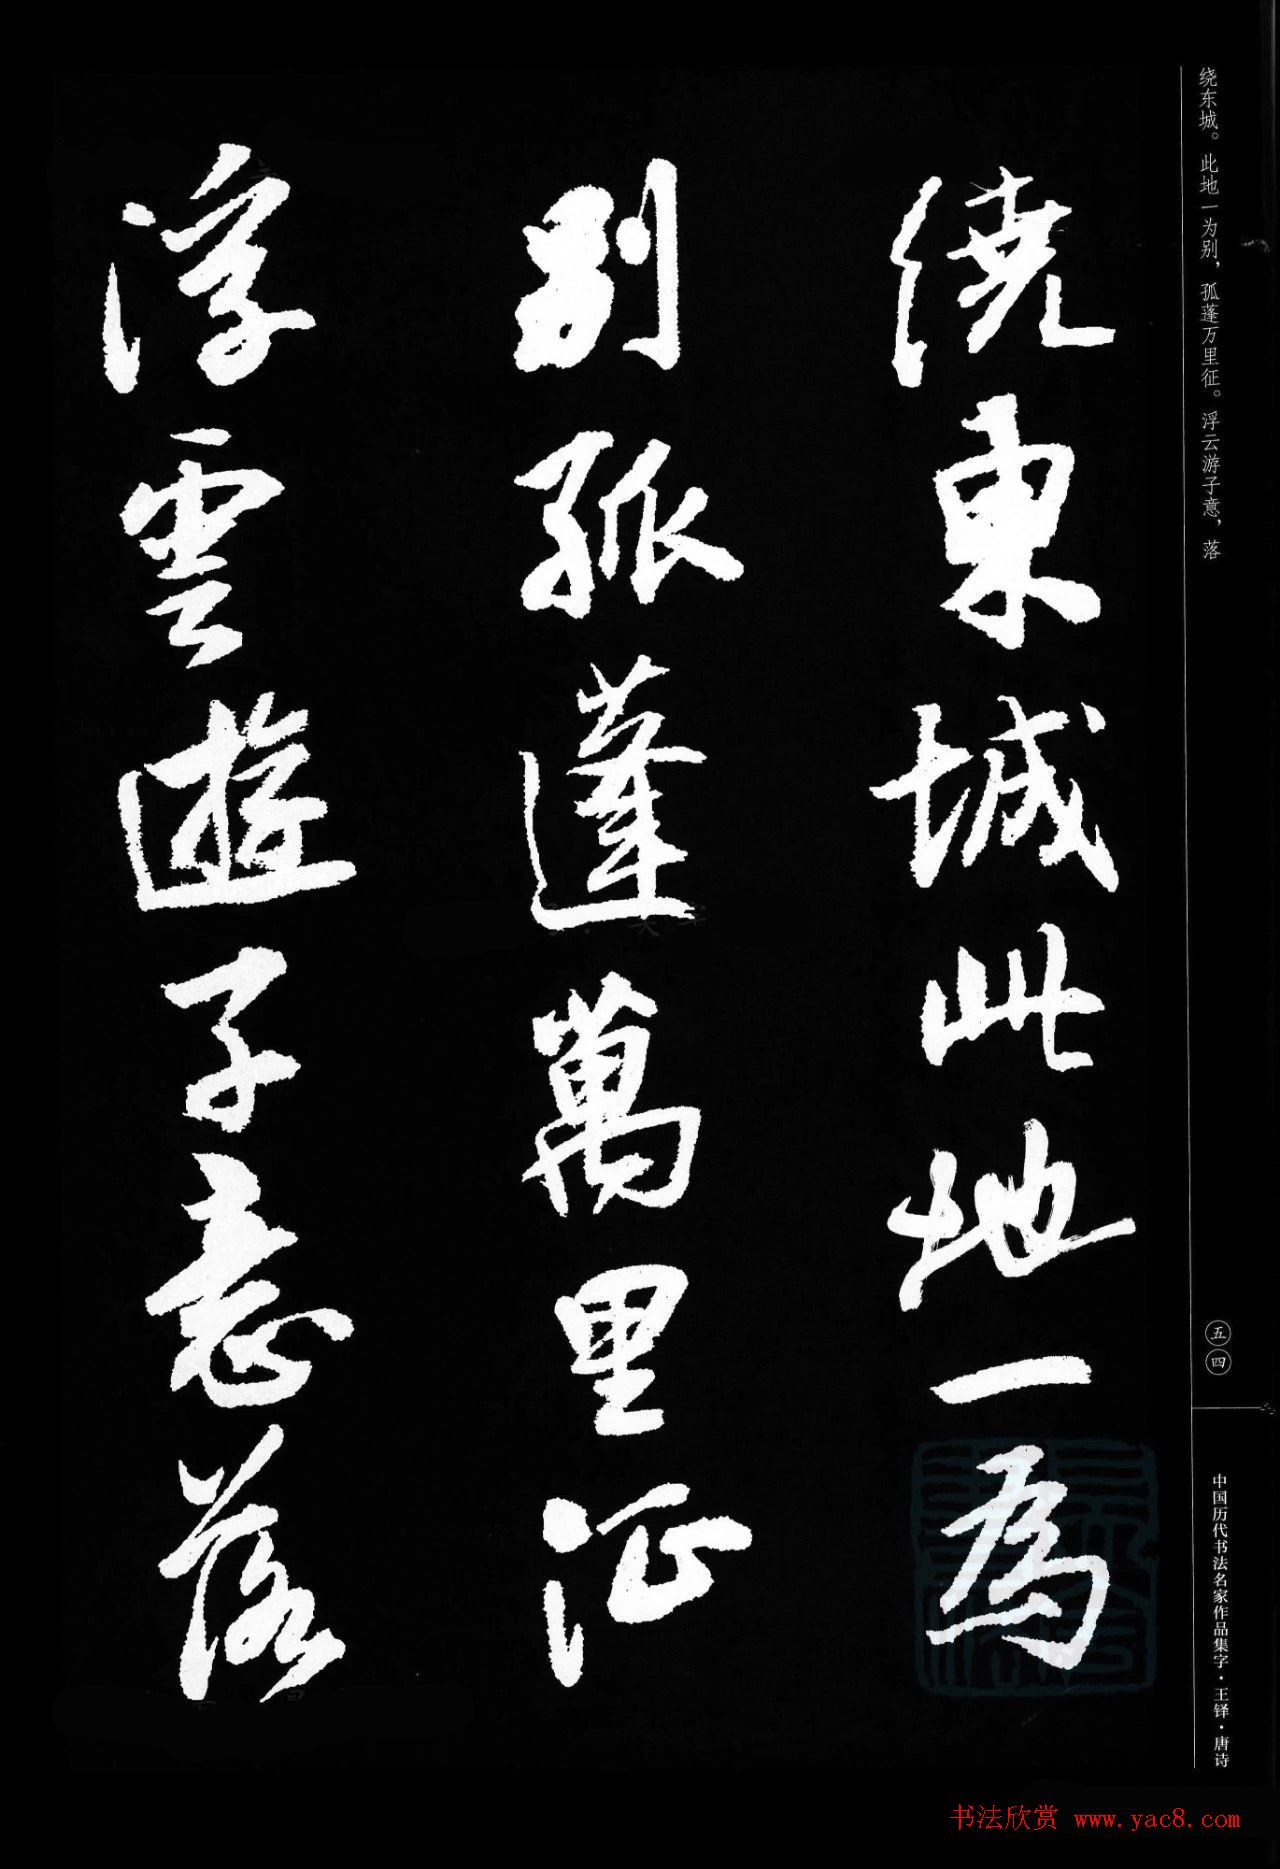 绕东城。此地一为别，孤蓬万里征。浮云游子意，落
繞東城此地一為
別孤蓬萬里征
浮雲遊子意落
五四
中国历代书法名家作品集字·王铎·唐诗
书法欣赏 www.yac8.com